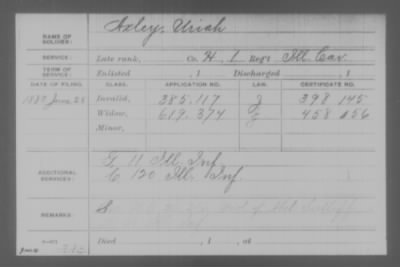 NAME OF SOLDIER: Axley, Uriah
SERVICE: Late rank, Co. H, 1 Reg't Ill. Cav.
TERM OF SERVICE: Enlisted , 1 Discharged , 1
DATE OF FILING. CLASS. APPLICATION NO. LAW. CERTIFICATE NO.
1880 June 28 Invalid, 385.117 398 145
Widow, 619.374 458
Minor,
ADDITIONAL SERVICES: G 11 Ill. Inf.
C 120 Ill. Inf.
REMARKS:
Died , 1 , at